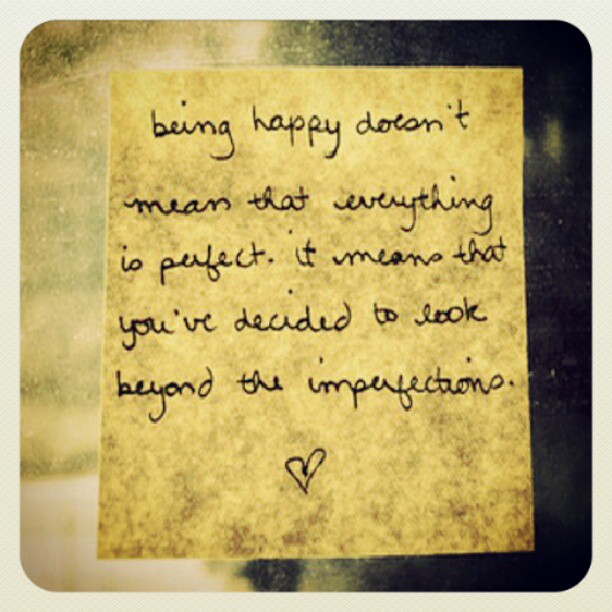 being happy doesn't
means that everything
is perfect. it means that
you've decided to look
beyond the imperfections.